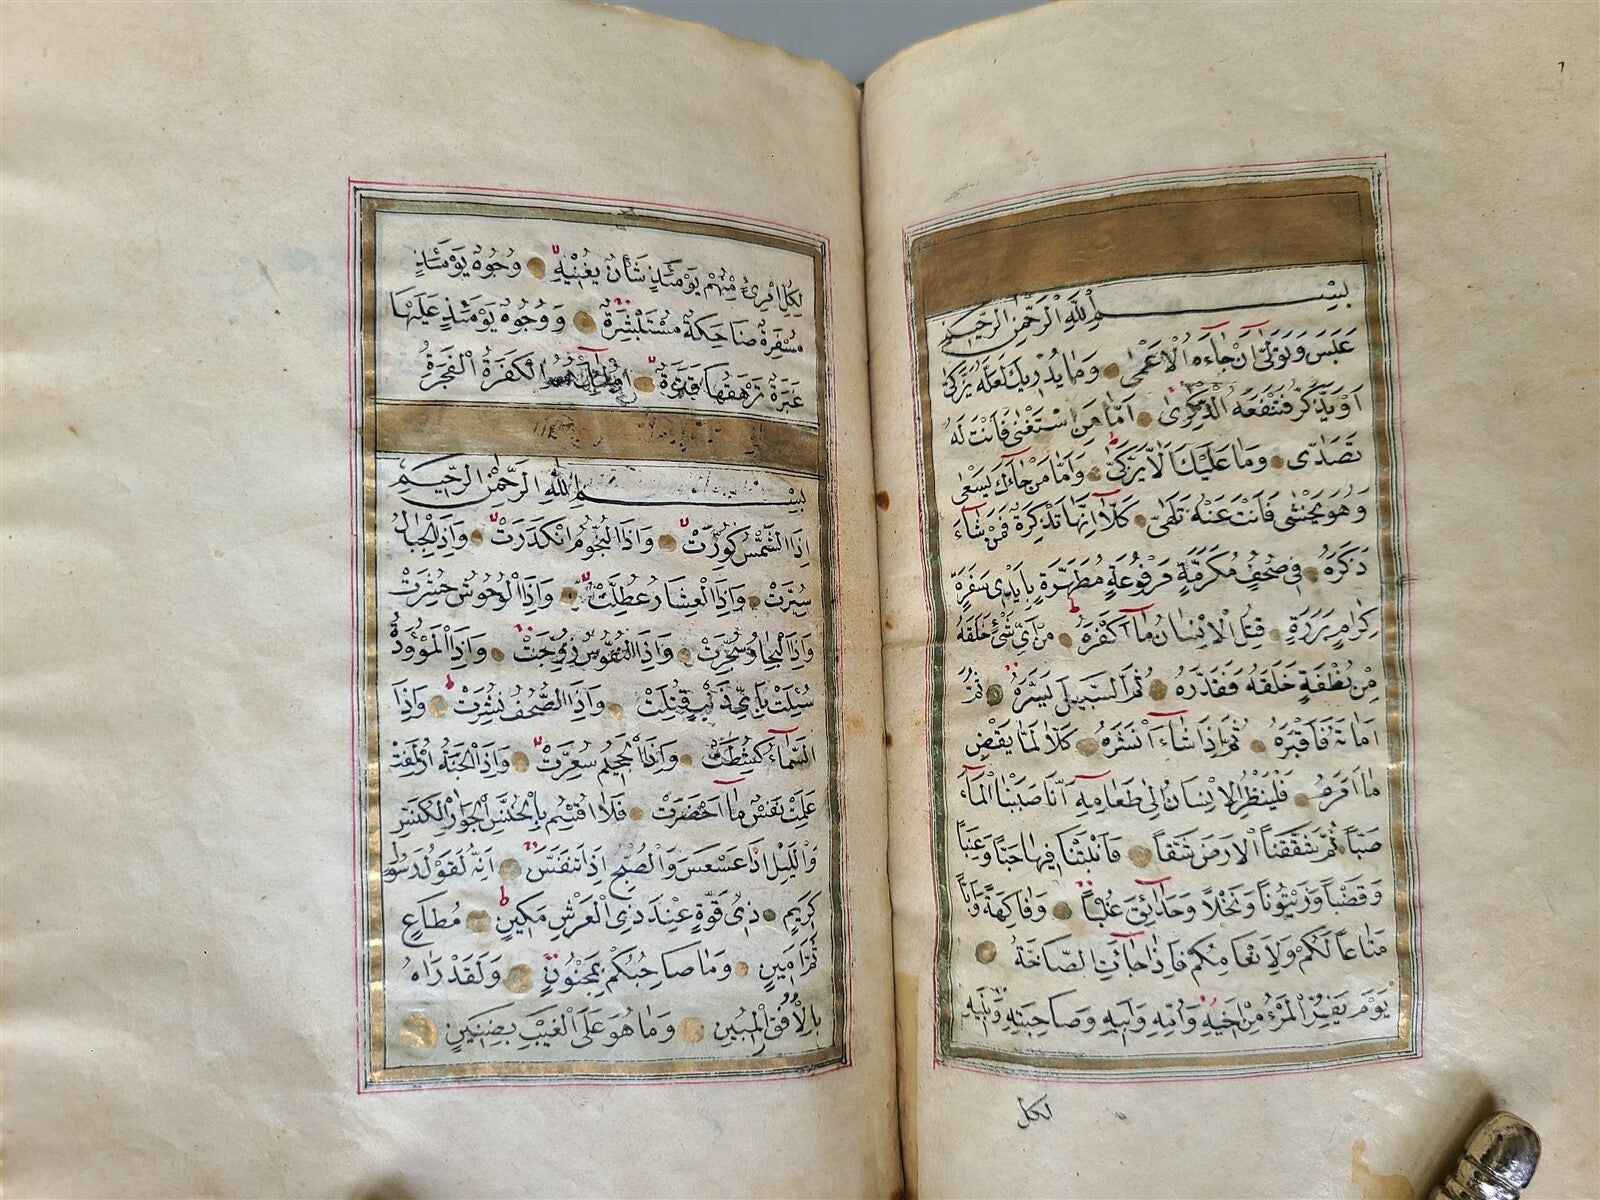 بِسْمِ اللّٰهِ الرَّحْمٰنِ الرَّحِيمِ
عَبَسَ وَتَوَلّٰى اَنْ جَاءَهُ الْاَعْمٰى وَمَا يُدْرِيكَ لَعَلَّهُ يَزَّكّٰى
اَوْ يَذَّكَّرُ فَتَنْفَعَهُ الذِّكْرٰى اَمَّا مَنِ اسْتَغْنٰى فَاَنْتَ لَهُ
تَصَدّٰى وَمَا عَلَيْكَ اَلَّا يَزَّكّٰى وَاَمَّا مَنْ جَاءَكَ يَسْعٰى
وَهُوَ يَخْشٰى فَاَنْتَ عَنْهُ تَلَهّٰى كَلَّا اِنَّهَا تَذْكِرَةٌ فَمَنْ شَاءَ
ذَكَرَهُ فِي صُحُفٍ مُكَرَّمَةٍ مَرْفُوعَةٍ مُطَهَّرَةٍ بِاَيْدِي سَفَرَةٍ
كِرَامٍ بَرَرَةٍ قُتِلَ الْاِنْسَانُ مَا اَكْفَرَهُ مِنْ اَيِّ شَيْءٍ خَلَقَهُ
مِنْ نُطْفَةٍ خَلَقَهُ فَقَدَّرَهُ ثُمَّ السَّبِيلَ يَسَّرَهُ ثُمَّ
اَمَاتَهُ فَاَقْبَرَهُ ثُمَّ اِذَا شَاءَ اَنْشَرَهُ كَلَّا لَمَّا يَقْضِ
مَا اَمَرَهُ فَلْيَنْظُرِ الْاِنْسَانُ اِلٰى طَعَامِهِ اَنَّا صَبَبْنَا الْمَاءَ
صَبًّا ثُمَّ شَقَقْنَا الْاَرْضَ شَقًّا فَاَنْبَتْنَا فِيهَا حَبًّا وَعِنَبًا
وَقَضْبًا وَزَيْتُونًا وَنَخْلًا وَحَدَائِقَ غُلْبًا وَفَاكِهَةً وَاَبًّا
مَتَاعًا لَكُمْ وَلِاَنْعَامِكُمْ فَاِذَا جَاءَتِ الصَّاخَّةُ
يَوْمَ يَفِرُّ الْمَرْءُ مِنْ اَخِيهِ وَاُمِّهِ وَاَبِيهِ وَصَاحِبَتِهِ وَبَنِيهِ
لكل
لِكُلِّ امْرِئٍ مِنْهُمْ يَوْمَئِذٍ شَأْنٌ يُغْنِيهِ وُجُوهٌ يَوْمَئِذٍ
مُسْفِرَةٌ ضَاحِكَةٌ مُسْتَبْشِرَةٌ وَوُجُوهٌ يَوْمَئِذٍ عَلَيْهَا
غَبَرَةٌ تَرْهَقُهَا قَتَرَةٌ الْكَفَرَةُ الْفَجَرَةُ
بِسْمِ اللّٰهِ الرَّحْمٰنِ الرَّحِيمِ
اِذَا الشَّمْسُ كُوِّرَتْ وَاِذَا النُّجُومُ انْكَدَرَتْ وَاِذَا الْجِبَالُ
سُيِّرَتْ وَاِذَا الْعِشَارُ عُطِّلَتْ وَاِذَا الْوُحُوشُ حُشِرَتْ
وَاِذَا الْبِحَارُ سُجِّرَتْ وَاِذَا النُّفُوسُ زُوِّجَتْ وَاِذَا الْمَوْؤُدَةُ
سُئِلَتْ بِاَيِّ ذَنْبٍ قُتِلَتْ وَاِذَا الصُّحُفُ نُشِرَتْ وَاِذَا
السَّمَاءُ كُشِطَتْ وَاِذَا الْجَحِيمُ سُعِّرَتْ وَاِذَا الْجَنَّةُ اُزْلِفَتْ
عَلِمَتْ نَفْسٌ مَا اَحْضَرَتْ فَلَا اُقْسِمُ بِالْخُنَّسِ الْجَوَارِ الْكُنَّسِ
وَالَّيْلِ اِذَا عَسْعَسَ وَالصُّبْحِ اِذَا تَنَفَّسَ اِنَّهُ لَقَوْلُ رَسُولٍ
كَرِيمٍ ذِي قُوَّةٍ عِنْدَ ذِي الْعَرْشِ مَكِينٍ مُطَاعٍ
ثَمَّ اَمِينٍ وَمَا صَاحِبُكُمْ بِمَجْنُونٍ وَلَقَدْ رَاٰهُ
بِالْاُفُقِ الْمُبِينِ وَمَا هُوَ عَلَى الْغَيْبِ بِضَنِينٍ